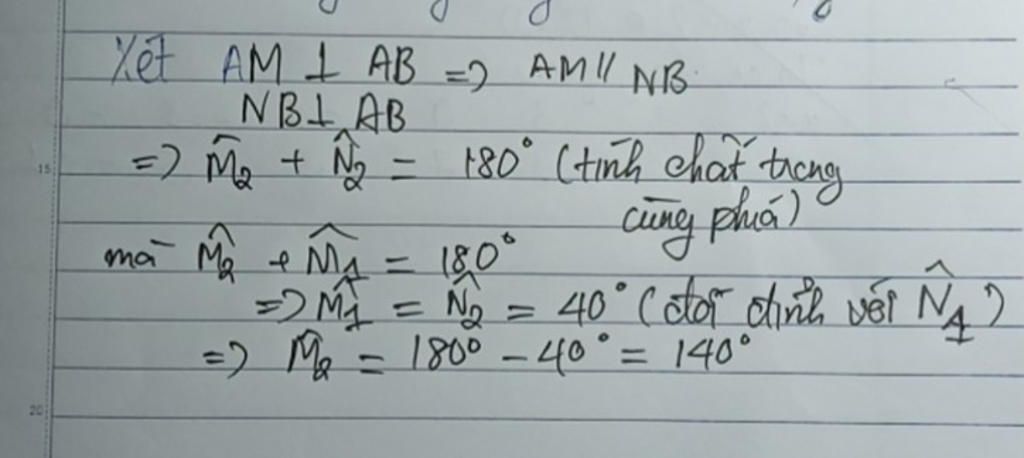 Xét AM ⊥ AB => AM // NB.
NB ⊥ AB
=> M̂₂ + N̂₂ = 180° (tính chất trong
cùng phía)
mà M̂₂ + M̂₁ = 180°
=> M̂₁ = N̂₂ = 40° (đối đỉnh với N̂₁)
=> M̂₂ = 180° - 40° = 140°
15
20